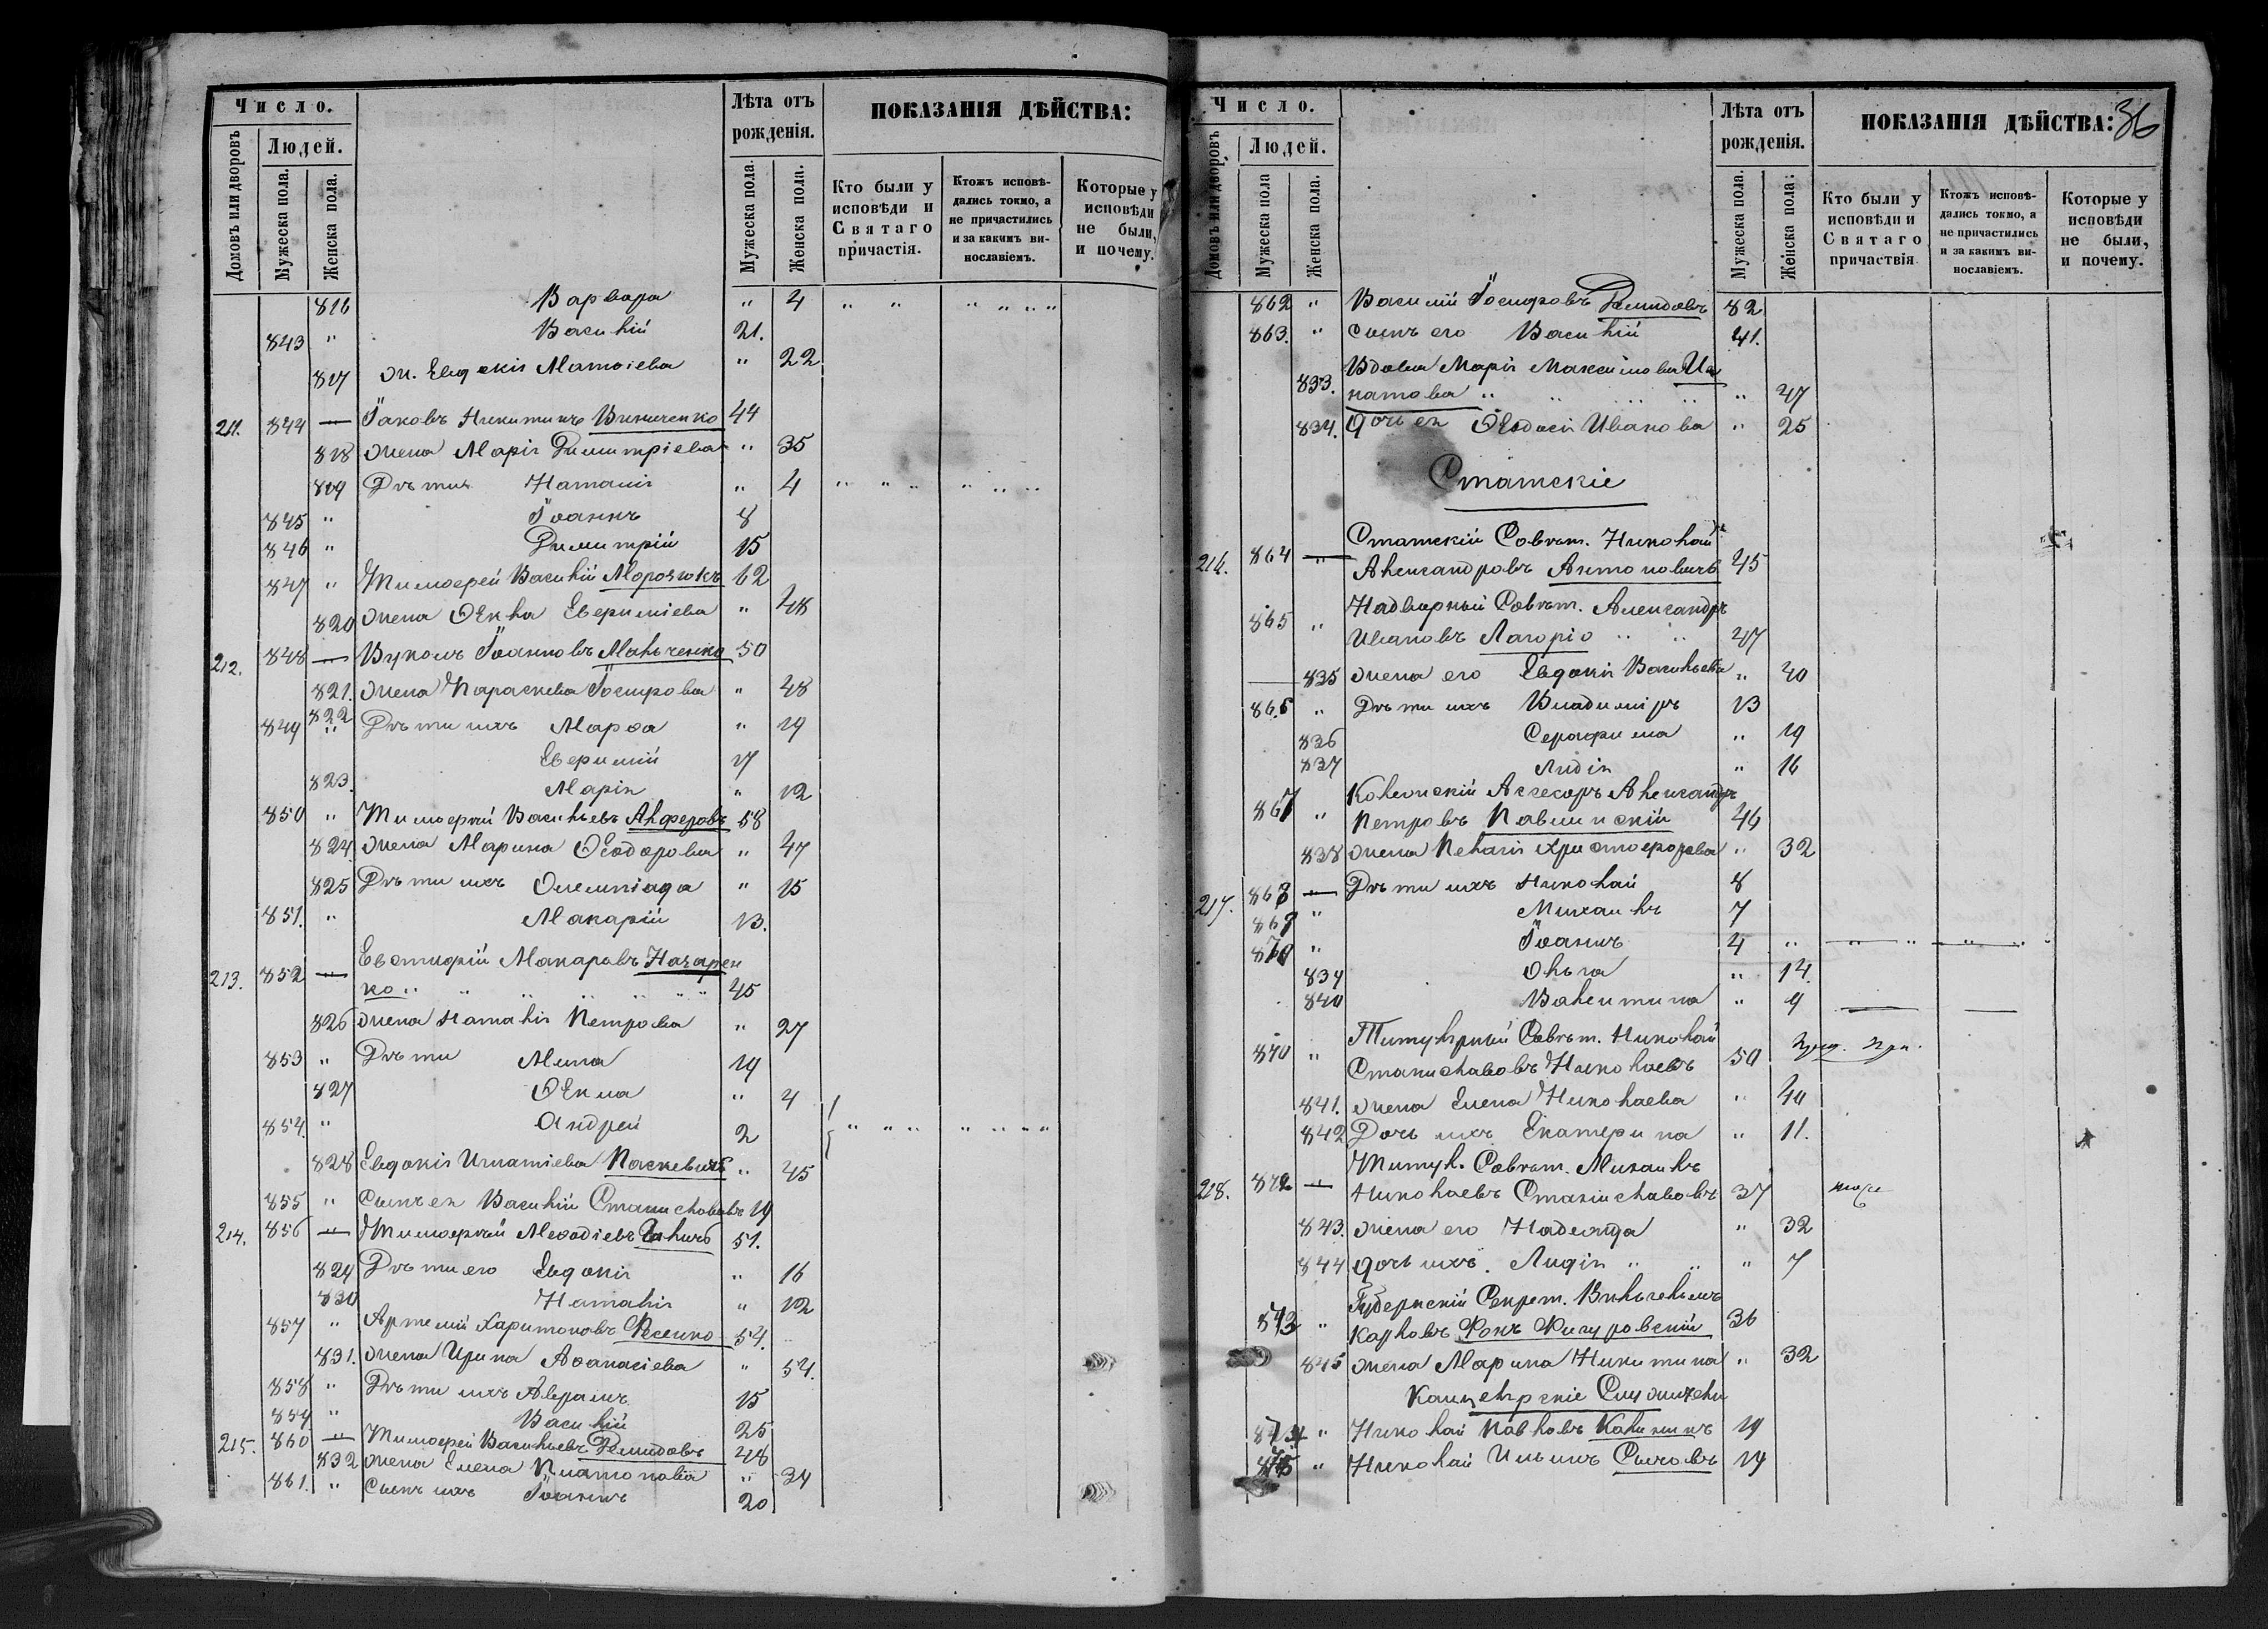 Число.
Домовъ или дворовъ
Людей.
Мужеска пола.
Женска пола.
Лѣта отъ рожденія.
Мужеска пола.
Женска пола.
ПОКАЗАНІЯ ДѢЙСТВА:
Кто были у исповѣди и Святаго причастія.
Ктожъ исповѣдались токмо, а не причастились и за какимъ винословіемъ.
Которые у исповѣди не были, и почему.
816 Варвара " 4 " " " " " "
843 " Василій 21.
817 ж. Евдокія Матѳіева " 22
211. 844 — Іаковъ Никитинъ Винниченко 44
818 жена Марія Димитріева " 35
819 Дѣти Наталія " 4 " " " " " "
845 " Іоаннъ 8
846 " Димитрій 15
847 " Тимоѳей Василій Морозюкъ 62
820 жена Ѳекла Евѳиміева " 48
212. 848 — Вуколъ Іоанновъ Мальченко 50
821. жена Параскева Іосифова " 48
849 822 " Дѣти ихъ Марѳа " 19
Евѳимій 17
823. Марія " 12
850 " Тимоѳей Васильевъ Алферовъ 58
824. жена Марина Ѳеодорова " 47
825 Дѣти ихъ Олимпіада " 15
851. " Макарій 13.
213. 852 — Евстифій Макаровъ Назарен
ко " " " " " " " 45
826 жена Наталія Петрова " 27
853 " Дѣти Мина 19
827 Ѳекла " 4
854. " Андрей 2 " " " " " " "
828 Евдокія Игнатіева Паскевичъ " 45
855 " Сынъ ея Василій Станиславовъ 19
214. 856 — Тимоѳей Меѳодіевъ 51.
829 Дѣти его Евдокія " 16
830 Наталія " 12
857 " Артемій Харитоновъ Фесенко 54.
831. жена Ирина Аѳанасіева " 54.
858 " Дѣти ихъ Аврамъ 15
859 " Василій 25
215. 860 — Тимоѳей Васильевъ Демидовъ 48
832 жена Елена Платонова " 34
861. " Сынъ ихъ Іоаннъ 20
36
Число.
Домовъ или дворовъ
Людей.
Мужеска пола
Женска пола.
Лѣта отъ рожденія.
Мужеска пола.
Женска пола:
ПОКАЗАНІЯ ДѢЙСТВА:
Кто были у исповѣди и Святаго причаствія
Ктожъ исповѣдались токмо, а не причастились и за какимъ винословіемъ.
Которые у исповѣди не были, и почему.
862 " Василій Іосифовъ Демидовъ 82
863. " сынъ его Василій 41.
833. Вдова Марія Максимова Иг
натова " " " " " 47
834. дочь ея Ѳеодосія Иванова " 25
Статскіе
216. 864 — Статскій Совѣт. Николай
" Александровъ Антоновичъ 45
865 " Надворный Совѣт. Александръ
Ивановъ Лагоріо " " 47
835 жена его Евдокія Васильева " 40
866 " Дѣти ихъ Владиміръ 13
836 Серафима " 19
837 Лидія " 16
867 " Колежскій Ассесоръ Александръ
Петровъ Павлинскій 46
838 жена Пелагія Христофорова " 32
217. 868 — Дѣти ихъ Николай 8
869 " Михаилъ 7
870 " Іоаннъ 4 " " " " " "
839 Ольга " 14.
840 Валентина " 9
870 " Титулярный Совѣт. Николай
Станиславовъ Николаевъ 50
841. жена Елена Николаева " 40
842 Дочь ихъ Екатерина " 11.
218. 872 — Титул. Совѣт. Михаилъ
Николаевъ Станиславовъ 37
843. жена его Надежда " 32
844 дочь ихъ. Лидія " " " 7
873 " Губернскій Секрет. Вильгельмъ
Карловъ Фонъ Фигуровскій 36
845 жена Марина Никитина " 32
Канцелярскіе Служители
874 " Николай Павловъ Калининъ 19
875 " Николай Ильинъ Сычовъ 19